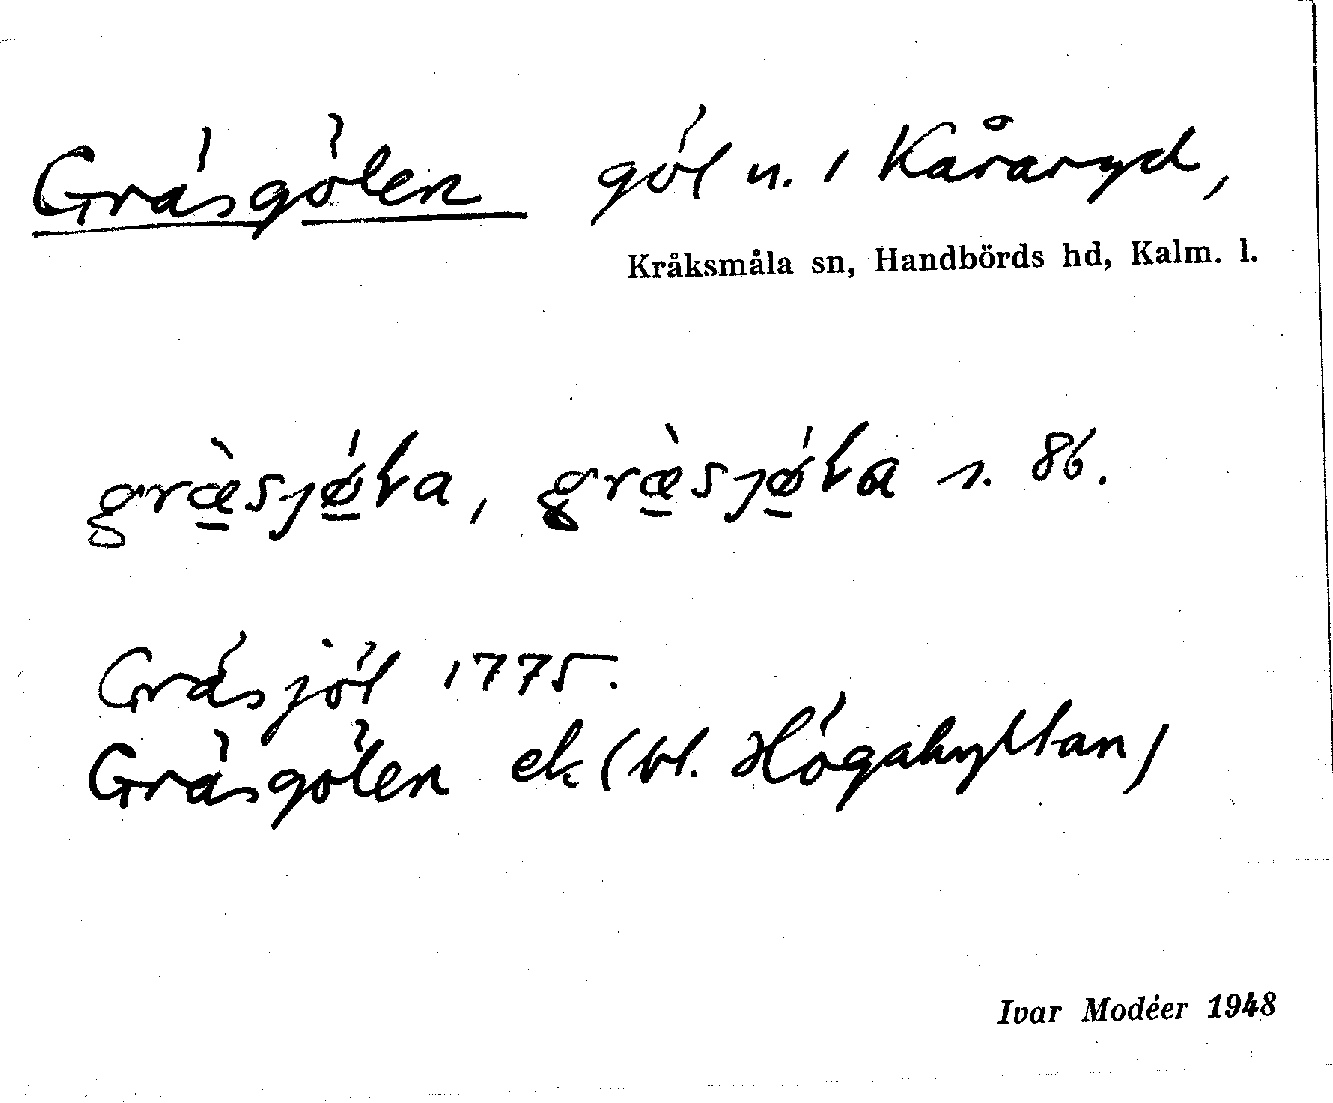 Gräsgölen göl n. i Kåraryd,
Kråksmåla sn, Handbörds hd, Kalm. l.
græ̀sjǿla, græ̀sjǿla s. 86.
Gräsjöl 1775.
Gräsgölen ek (bl. Högahyltan)
Ivar Modéer 1948